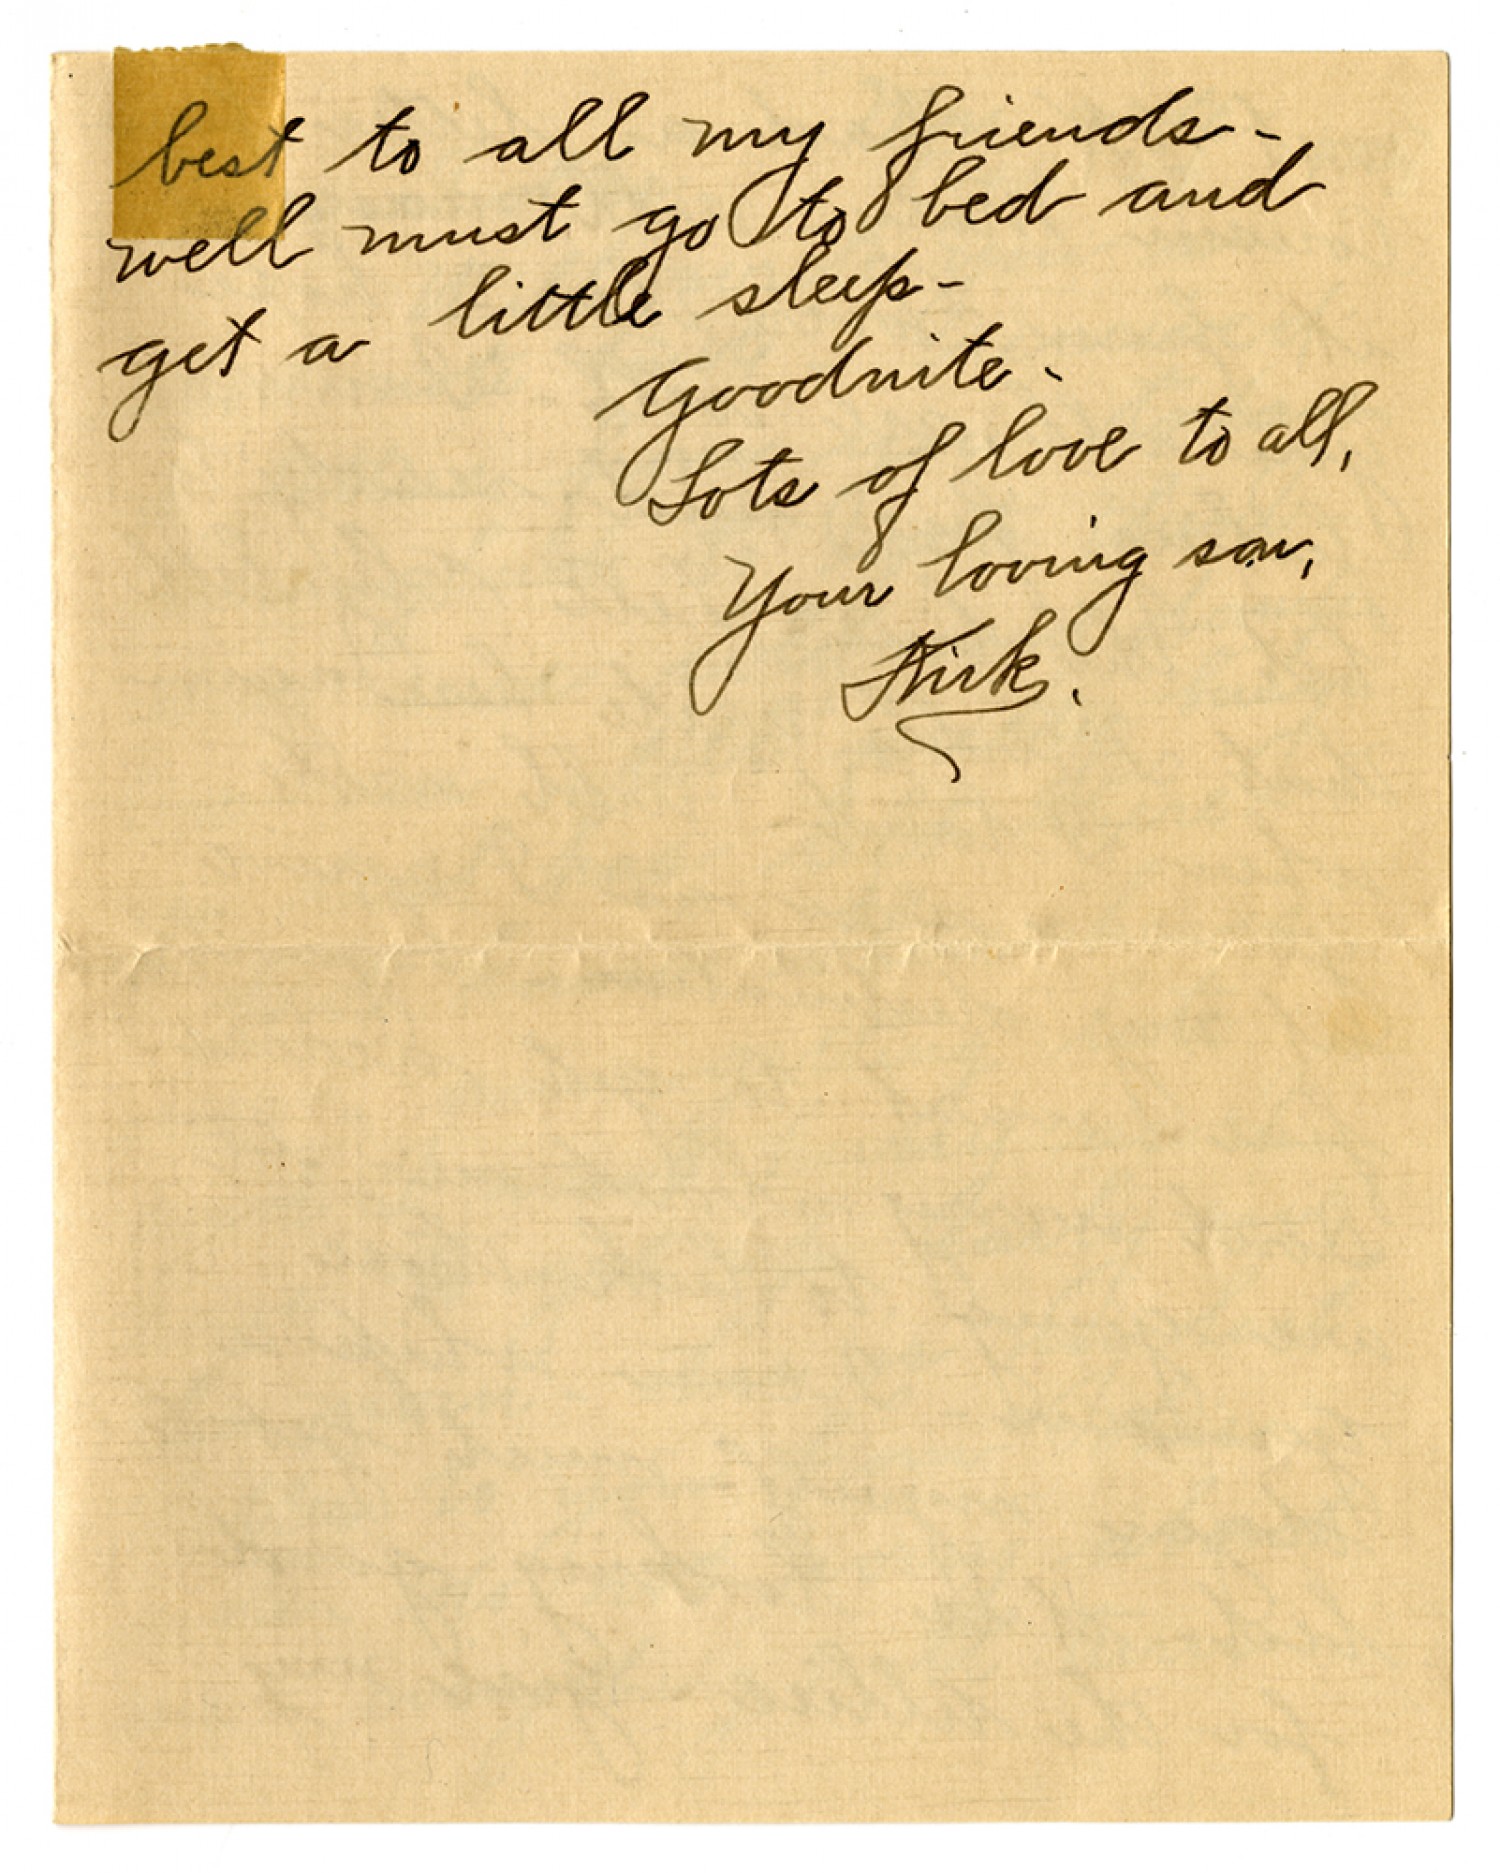 best to all my friends -
well must go to bed and
get a little sleep -
Goodnite -
Lots of love to all,
Your loving son,
Kirk.